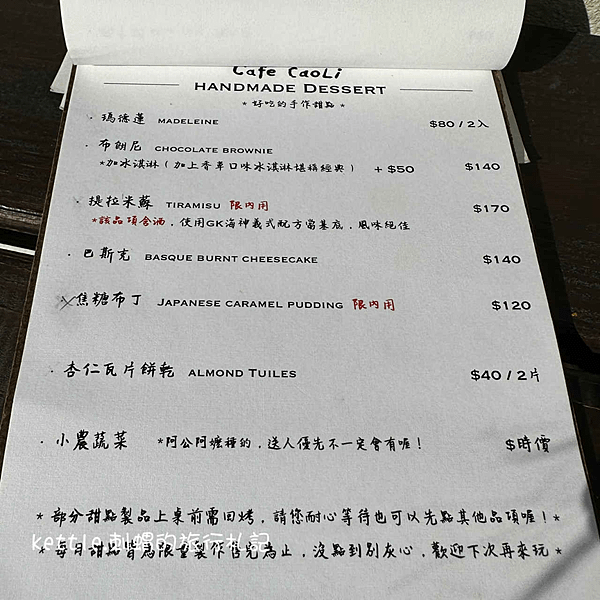 Cafe CaoLi
HANDMADE DESSERT
*好吃的手作甜點*
·瑪德蓮 MADELEINE $80/2入
·布朗尼 CHOCOLATE BROWNIE
*加冰淇淋(加上香草口味冰淇淋堪稱經典) +$50 $140
·提拉米蘇 TIRAMISU 限內用 $170
*該品項含酒,使用GK海神義式配方當基底,風味絕佳
·巴斯克 BASQUE BURNT CHEESECAKE $140
焦糖布丁 JAPANESE CARAMEL PUDDING 限內用 $120
·杏仁瓦片餅乾 ALMOND TUILES $40/2片
·小農蔬菜 *阿公阿嬤種的,送人優先不一定會有喔! $時價
*部分甜點製品上桌前需回烤,請您耐心等待也可以先點其他品項喔!*
kettle.刺蝟的旅行札記
*每月甜品皆為限量製作售完為止,沒點到別灰心,歡迎下次再來玩*